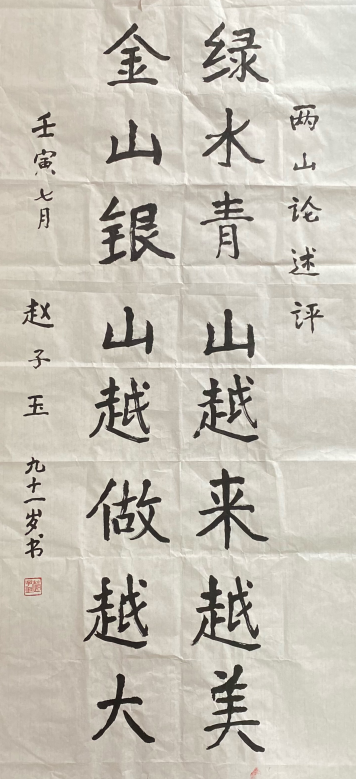 两山论述评
绿水青山越来越美
金山银山越做越大
壬寅七月
赵子玉 九十一岁书